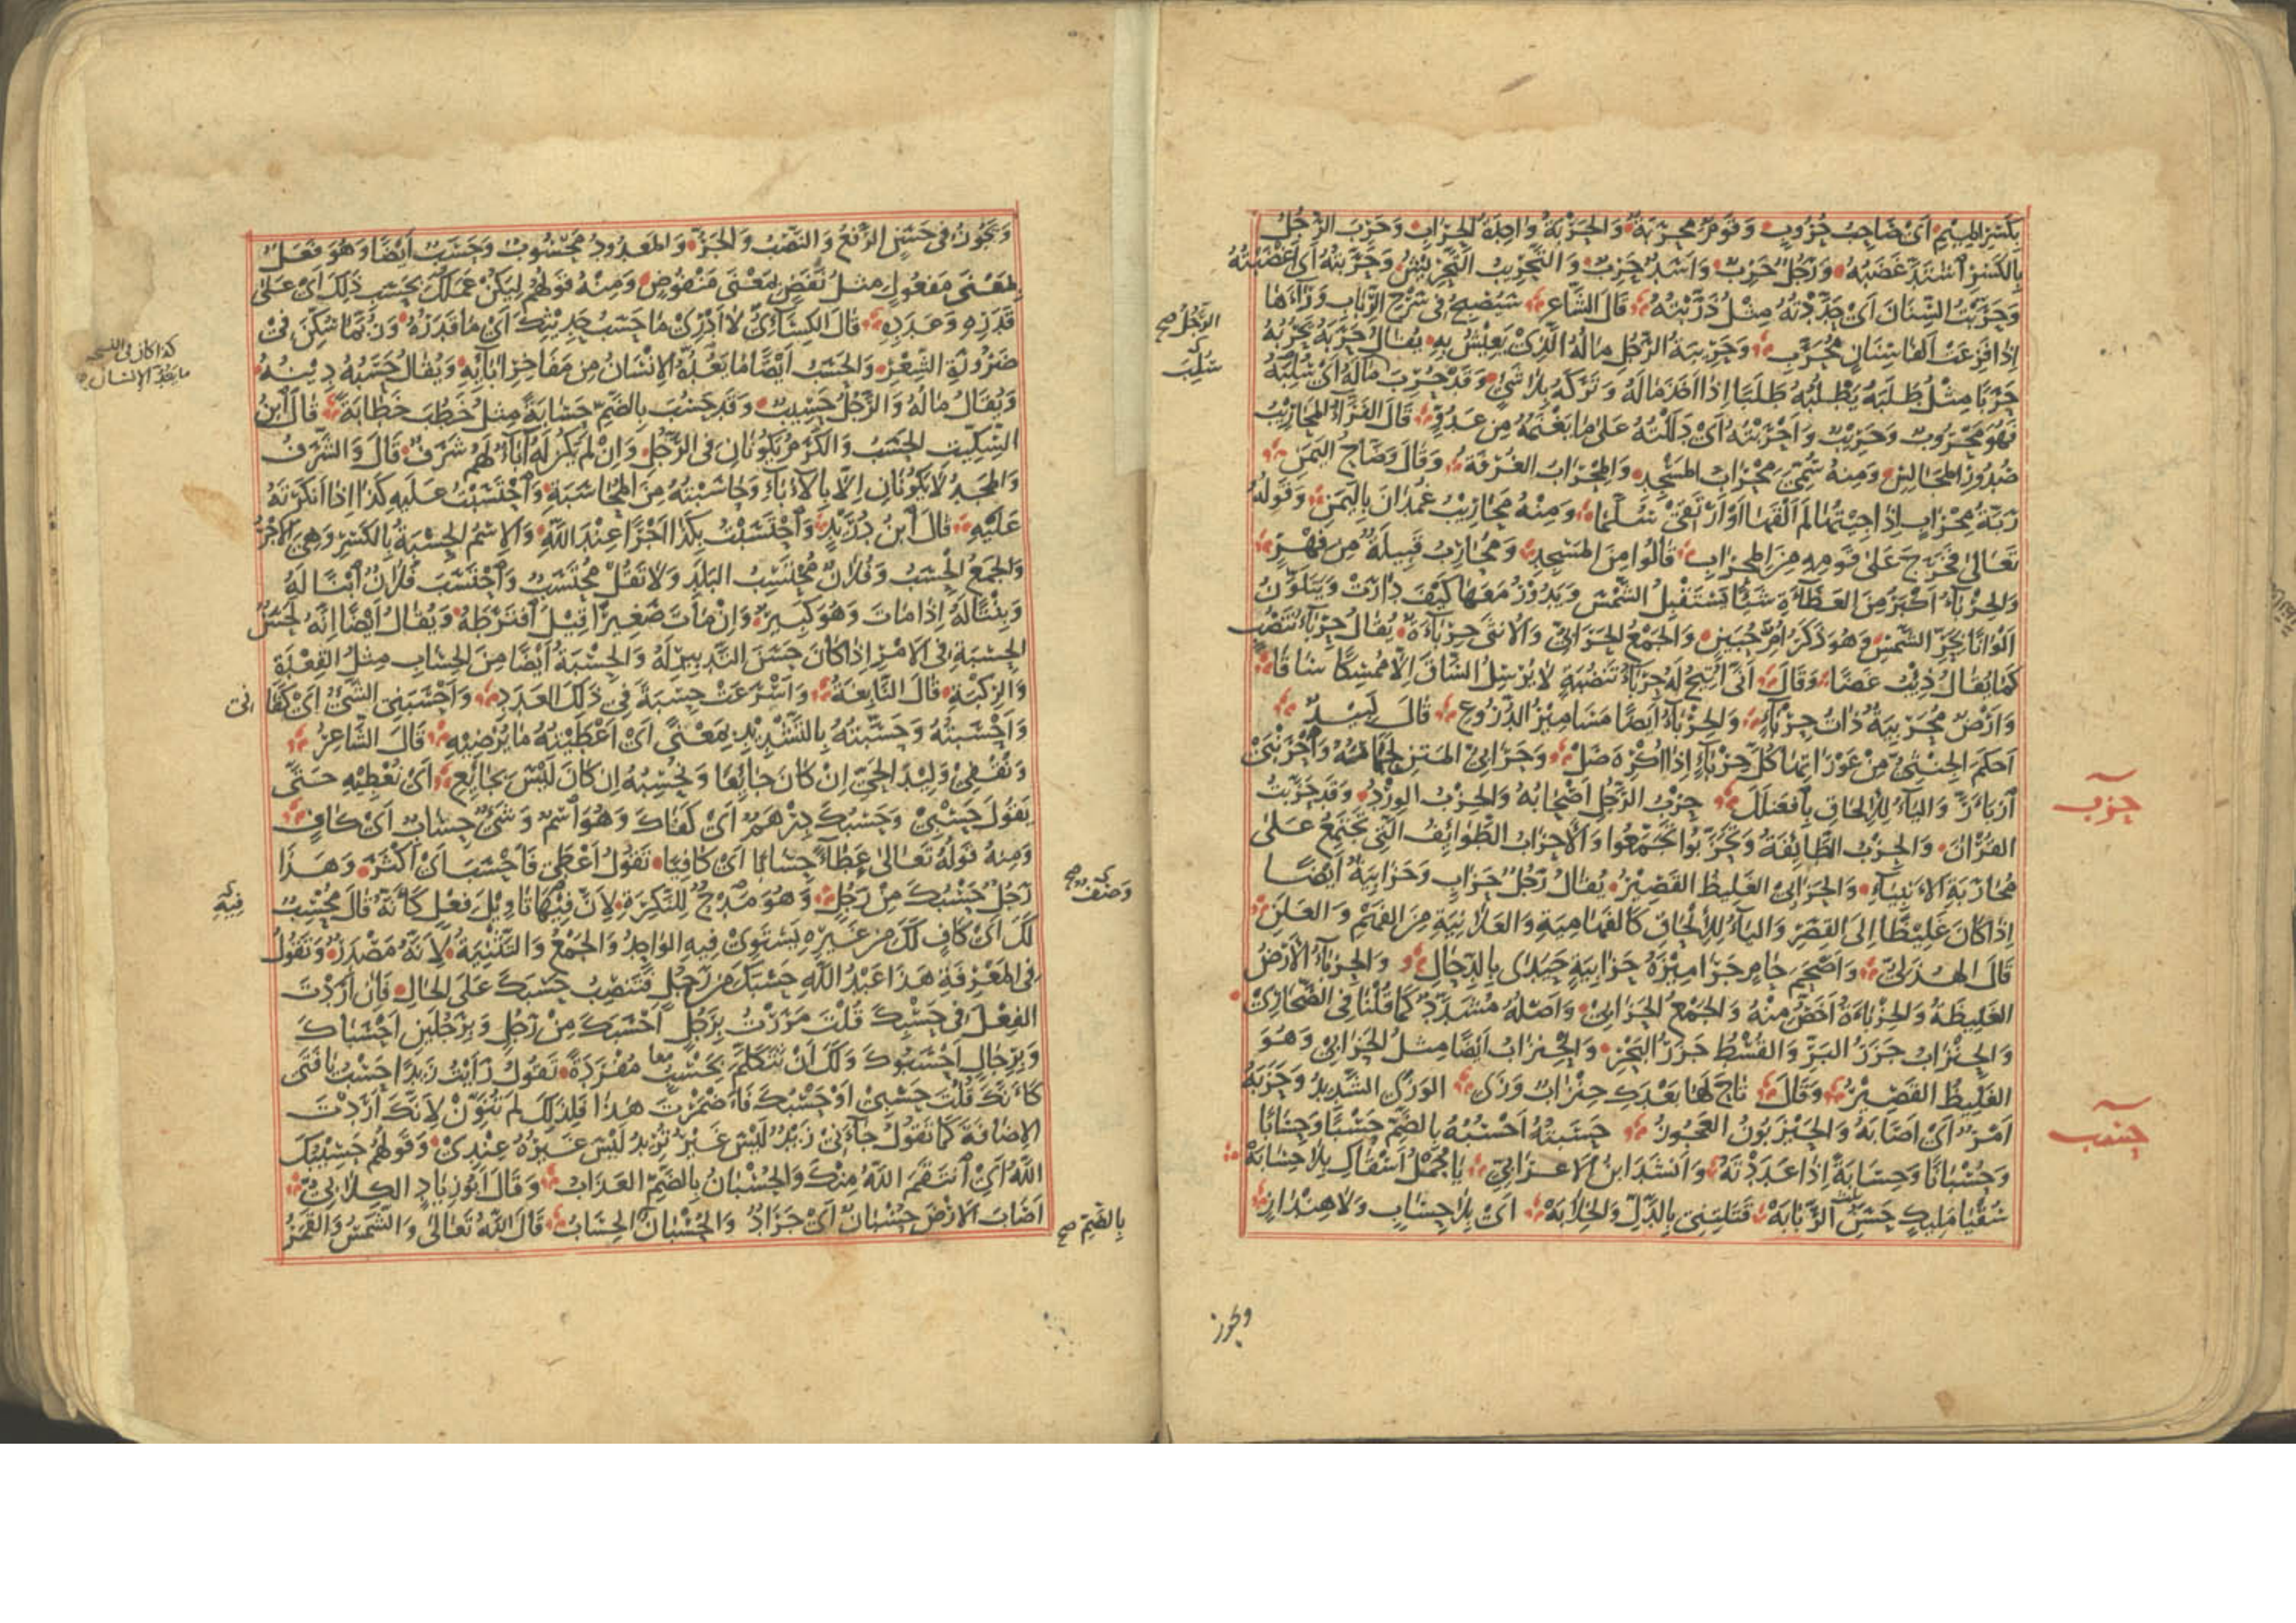 بِكَسْرِ المِيْمِ أَىْ صَاحِبُ حُرُوبٍ وَقَوْمٌ مِحْرَبَةٌ وَالحِرْبَةُ وَاحِدَةُ الحِرَابِ وَحَرِبَ الرَّجُلُ
بِالكَسْرِ اشْتَدَّ غَضَبُهُ وَرَجُلٌ حَرِبٌ وَأَسَدٌ حَرِبٌ وَالتَّحْرِيبُ التَّحْرِيْشُ وَحَرَّبْتُهُ أَىْ أَغْضَبْتُهُ
وَحَرَّبْتُ السِّنَانَ أَىْ حَدَّدْتُهُ مِثْلُ ذَرَّبْتُهُ قَالَ الشَّاعِرُ سَيُصْبِحُ فِى سَرْحِ الرِّبَابِ وَرَاءَهَا
إِذَا فَزِعَتْ أَلْفَا سِنَانٍ مُحَرَّبِ وَحَرِيْبَةُ الرَّجُلِ مَالُهُ الَّذِىْ يَعِيْشُ بِهِ يُقَالُ حَرَبَهُ يَحْرُبُهُ
حَرَبًا مِثْلُ طَلَبَهُ يَطْلُبُهُ طَلَبًا إِذَا أَخَذَ مَالَهُ وَتَرَكَهُ بِلَا شَىْءٍ وَقَدْ حُرِبَ مَالَهُ أَىْ سُلِبَهُ
فَهُوَ مَحْرُوبٌ وَحَرِيْبٌ وَأَحْرَبْتُهُ أَىْ دَلَلْتُهُ عَلَى مَا يَغْنَمُهُ مِنْ عَدُوٍّ قَالَ الفَرَّاءُ المَحَارِيْبُ
صُدُورُ المَجَالِسِ وَمِنْهُ سُمِّىَ مِحْرَابُ المَسْجِدِ وَالمِحْرَابُ الغُرْفَةُ وَقَالَ وَضَّاحُ اليَمَنِ
رَبَّةُ مِحْرَابٍ إِذَا جِئْتُهَا لَمْ أَلْقَهَا أَوْ أَرْتَقِىْ سُلَّمَا وَمِنْهُ مَحَارِيْبُ غُمْدَانَ بِاليَمَنِ وَقَوْلُهُ
تَعَالَى فَخَرَجَ عَلَى قَوْمِهِ مِنَ المِحْرَابِ قَالُوا مِنَ المَسْجِدِ وَمُحَارِبُ قَبِيْلَةٌ مِنْ فِهْرٍ
وَالحِرْبَاءُ أَكْبَرُ مِنَ العَظَاءَةِ شَيْئًا يَسْتَقْبِلُ الشَّمْسَ وَيَدُوْرُ مَعَهَا كَيْفَ دَارَتْ وَيَتَلَوَّنُ
أَلْوَانًا بِحَرِّ الشَّمْسِ وَهُوَ ذَكَرُ أُمِّ حُبَيْنٍ وَالجَمْعُ الحَرَابِىُّ وَالأُنْثَى حِرْبَاءَةٌ يُقَالُ حِرْبَاءُ تَنْضُبٍ
كَمَا يُقَالُ ذِئْبُ غَضًا وَقَالَ أَنَّى أُتِيْحَ لَهُ حِرْبَاءُ تَنْضُبَةٍ لَا يُرْسِلُ السَّاقَ إِلَّا مُمْسِكًا سَاقَا
وَأَرْضٌ مُحَرْبِيَةٌ ذَاتُ حِرْبَاءٍ وَالحِرْبَاءُ أَيْضًا مَسَامِيْرُ الدُّرُوْعِ قَالَ لَبِيْدٌ
أَحْكَمَ الجِنْثِىُّ مِنْ عَوْرَاتِهَا كُلَّ حِرْبَاءٍ إِذَا أُكْرِهَ صَلّْ وَحَرَابِىُّ المَتْنِ لَحَمَاتُهُ وَاحْرَنْبَىٰ
ازْبَأَرَّ وَاليَاءُ لِلْإِلْحَاقِ بِافْعَنْلَلَ حِزْبُ الرَّجُلِ أَصْحَابُهُ وَالحِزْبُ الوِرْدُ وَقَدْ حَزَّبْتُ
القُرْآنَ وَالحِزْبُ الطَّائِفَةُ وَتَحَزَّبُوا تَجَمَّعُوا وَالأَحْزَابُ الطَّوَائِفُ الَّتِى تَجْتَمِعُ عَلَى
مُحَارَبَةِ الأَنْبِيَاءِ وَالحَزَابِىْ الغَلِيظُ القَصِيْرُ يُقَالُ رَجُلٌ حَزَابٍ وَحَزَابِيَةٌ أَيْضًا
إِذَا كَانَ غَلِيْظًا إِلَى القِصَرِ وَاليَاءُ لِلْإِلْحَاقِ كَالفَهَامِيَةِ وَالعَلَانِيَةِ مِنَ الفَهْمِ وَالعَلَنِ
قَالَ الهُذَلِىُّ وَأَصْحَمَ حَامٍ جَرَامِيْزَهُ حَزَابِيَةٍ حَيَدَى بِالدِّحَالِ وَالحِزْبَاءُ الأَرْضُ
الغَلِيْظَةُ وَالحِزْبَاءَةُ أَخَصُّ مِنْهُ وَالجَمْعُ الحَزَابِىْ وَأَصْلُهُ مُشَدَّدٌ كَمَا قُلْنَا فِى الصَّحَارِىْ
وَالحِنْزَابُ جَزَرُ البَرِّ وَالقُسْطُ جَزَرُ البَحْرِ وَالحِنْزَابُ أَيْضًا مِثْلُ الحَزَابِىْ وَهُوَ
الغَلِيْظُ القَصِيْرُ وَقَالَ تَاحَ لَهَا بَعْدَكِ حِنْزَابٌ وَزَى الوَزَى الشَّدِيْدُ وَحَزَبَهُ
أَمْرٌ أَىْ أَصَابَهُ وَالحَيْزَبُونُ العَجُوزُ حَسَبْتُهُ أَحْسُبُهُ بِالضَّمِّ حَسْبًا وَحِسَابًا
وَحُسْبَانًا وَحِسَابَةً إِذَا عَدَدْتَهُ وَأَنْشَدَ ابْنُ الأَعْرَابِىِّ يَا جُمْلُ أَسْقَاكِ بِلَا حِسَابَهْ
سُقْيَا مَلِيْكٍ حَسَنِ الرِّبَابَهْ قَتَلْتِنِى بِالدَّلِّ وَالخِلَابَهْ أَىْ بِلَا حِسَابٍ وَلَا هِنْدَازٍ
حزب
حسب
الرَّجُلُ صح
سُلِبَ
ويجوز
وَيَجُوْزُ فِى حَسَنِ الرَّفْعُ وَالنَّصْبُ وَالجَرُّ وَالمَعْدُودُ مَحْسُوْبٌ وَحَسَبٌ أَيْضًا وَهُوَ فَعَلٌ
بِمَعْنَى مَفْعُولٍ مِثْلُ نَفَضٍ بِمَعْنَى مَنْفُوضٍ وَمِنْهُ قَوْلُهُمْ لِيَكُنْ عَمَلُكَ بِحَسَبِ ذَلِكَ أَىْ عَلَى
قَدْرِهِ وَعَدَدِهِ قَالَ الكِسَائِىُّ لَا أَدْرِىْ مَا حَسَبُ حَدِيْثِكَ أَىْ مَا قَدْرُهُ وَرُبَّمَا سُكِّنَ فِىْ
ضَرُورَةِ الشِّعْرِ وَالحَسَبُ أَيْضًا مَا يَعُدُّهُ الإِنْسَانُ مِنْ مَفَاخِرِ آبَائِهِ وَيُقَالُ حَسَبُهُ دِيْنُهُ
وَيُقَالُ مَالُهُ وَالرَّجُلُ حَسِيْبٌ وَقَدْ حَسُبَ بِالضَّمِّ حَسَابَةً مِثْلُ خَطُبَ خَطَابَةً قَالَ ابْنُ
السِّكِّيْتِ الحَسَبُ وَالكَرَمُ يَكُونَانِ فِى الرَّجُلِ وَإِنْ لَمْ يَكُنْ لَهُ آبَاءٌ لَهُمْ شَرَفٌ قَالَ وَالشَّرَفُ
وَالمَجْدُ لَا يَكُوْنَانِ إِلَّا بِالآبَاءِ وَحَاسَبْتُهُ مِنَ المُحَاسَبَةِ وَاحْتَسَبْتُ عَلَيْهِ كَذَا إِذَا أَنْكَرْتَهُ
عَلَيْهِ قَالَ ابْنُ دُرَيْدٍ وَاحْتَسَبْتُ بِكَذَا أَجْرًا عِنْدَ اللَّهِ وَالاِسْمُ الحِسْبَةُ بِالكَسْرِ وَهِىَ الأَجْرُ
وَالجَمْعُ الحِسَبُ وَفُلَانٌ مُحْتَسِبُ البَلَدِ وَلَا تَقُلْ مُحْسِبٌ وَاحْتَسَبَ فُلَانٌ ابْنًا لَهُ
وَبِنْتًا لَهُ إِذَا مَاتَ وَهُوَ كَبِيْرٌ وَإِنْ مَاتَ صَغِيْرًا قِيْلَ افْتَرَطَهُ وَيُقَالُ أَيْضًا إِنَّهُ لَحَسَنُ
الحِسْبَةِ فِى الأَمْرِ إِذَا كَانَ حَسَنَ التَّدْبِيْرِ لَهُ وَالحِسْبَةُ أَيْضًا مِنَ الحِسَابِ مِثْلُ القِعْدَةِ
وَالرِّكْبَةِ قَالَ النَّابِغَةُ وَأَسْرَعَتْ حِسْبَةً فِى ذَلِكَ العَدَدِ وَأَحْسَبَنِى الشَّىْءُ أَىْ كَفَانِى
وَأَحْسَبْتُهُ وَحَسَّبْتُهُ بِالتَّشْدِيْدِ بِمَعْنًى أَىْ أَعْطَيْتُهُ مَا يُرْضِيْهِ قَالَ الشَّاعِرُ
وَنُقْفِىْ وَلِيْدَ الحَىِّ إِنْ كَانَ جَائِعًا وَنُحْسِبُهُ إِنْ كَانَ لَيْسَ بِجَائِعِ أَىْ نُعْطِيْهِ حَتَّى
يَقُولَ حَسْبِىْ وَحَسْبُكَ دِرْهَمٌ أَىْ كَفَاكَ وَهُوَ اسْمٌ وَشَىْءٌ حِسَابٌ أَىْ كَافٍ
وَمِنْهُ قَوْلُهُ تَعَالَى عَطَاءً حِسَابًا أَىْ كَافِيًا تَقُولُ أَعْطَى فَأَحْسَبَ أَىْ أَكْثَرَ وَهَذَا
رَجُلٌ حَسْبُكَ مِنْ رَجُلٍ وَهُوَ مَدْحٌ لِلنَّكِرَةِ لِأَنَّ فِيْهَا تَأْوِيْلَ فِعْلٍ كَأَنَّهُ قَالَ مُحْسِبٌ
لَكَ أَىْ كَافٍ لَكَ مِنْ غَيْرِهِ يَسْتَوِىْ فِيهِ الوَاحِدُ وَالجَمْعُ وَالتَّثْنِيَةُ لِأَنَّهُ مَصْدَرٌ وَتَقُولُ
فِى المَعْرِفَةِ هَذَا عَبْدُ اللَّهِ حَسْبَكَ مِنْ رَجُلٍ فَتَنْصِبُ حَسْبَكَ عَلَى الحَالِ فَإِنْ أَرَدْتَ
الفِعْلَ فِى حَسْبِكَ قُلْتَ مَرَرْتُ بِرَجُلٍ أَحْسَبَكَ مِنْ رَجُلٍ وَبِرَجُلَيْنِ أَحْسَبَاكَ
وَبِرِجَالٍ أَحْسَبُوكَ وَلَكَ أَنْ تَتَكَلَّمَ بِحَسْبُ مُفْرَدَةً تَقُولُ رَأَيْتُ زَيْدًا حَسْبُ يَا فَتَى
كَأَنَّكَ قُلْتَ حَسْبِىْ أَوْ حَسْبُكَ فَأَضْمَرْتَ هَذَا فَلِذَلِكَ لَمْ تُنَوِّنْ لِأَنَّكَ أَرَدْتَ
الإِضَافَةَ كَمَا تَقُولُ جَاءَنِىْ زَيْدٌ لَيْسَ غَيْرُ تُرِيْدُ لَيْسَ غَيْرُهُ عِنْدِىْ وَقَوْلُهُمْ حَسِيْبُكَ
اللَّهُ أَىِ انْتَقَمَ اللَّهُ مِنْكَ وَالحُسْبَانُ بِالضَّمِّ العَذَابُ وَقَالَ أَبُو زِيَادٍ الكِلَابِىُّ
أَصَابَ الأَرْضَ حُسْبَانٌ أَىْ جَرَادٌ وَالحُسْبَانُ الحِسَابُ قَالَ اللَّهُ تَعَالَى وَالشَّمْسُ وَالقَمَرُ
كذا كان فى النسخة
ما يعده الإنسان
فِيْهِ
وَصْفٌ صح
بِالضَّمِّ صح